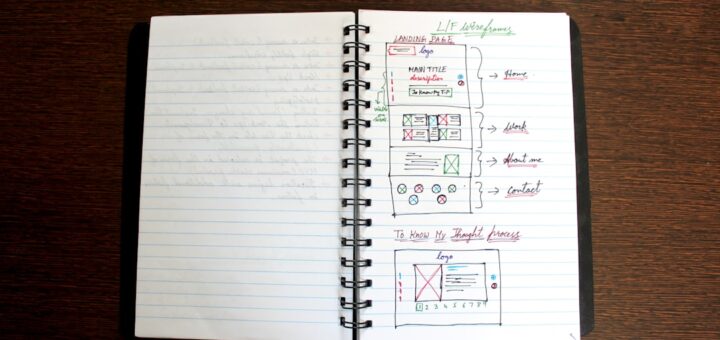 L/F wireframes
LANDING PAGE
logo
MAIN TITLE
description
To Know My T.P
Home
Work
About me
Contact
To Know My Thought process
logo
1 2 3 4 5 6 7 8 9